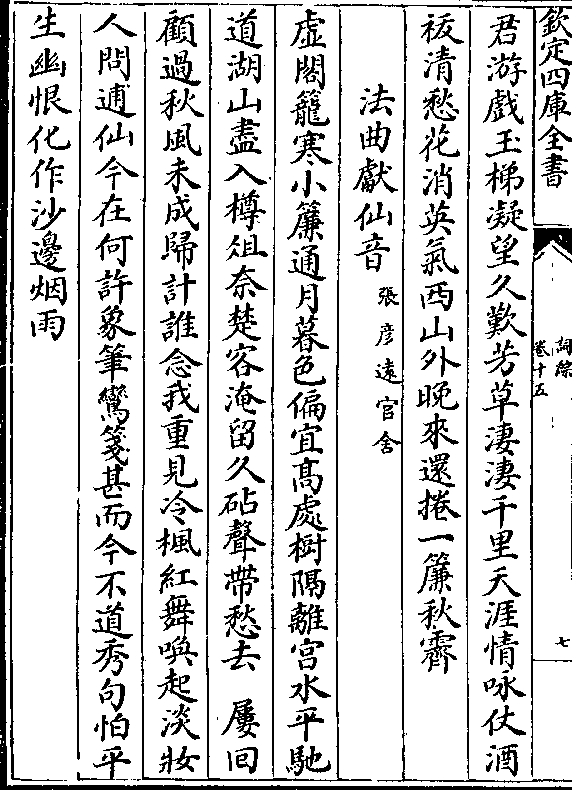 欽定四庫全書
詞綜
卷十五
七
君游戲玉梯凝望久歎芳草淒淒千里天涯情味仗酒
祓清愁花消英氣西山外晚來還捲一簾秋霽
法曲獻仙音 張彥遠官舍
虛閣籠寒小簾通月暮色偏宜高處樹隔離宮水平馳
道湖山盡入樽俎奈楚客淹留久砧聲帶愁去 屢回
顧過秋風未成歸計誰念我重見冷楓紅舞喚起淡妝
人問逋仙今在何許象筆鸞箋甚而今不道秀句怕平
生幽恨化作沙邊烟雨